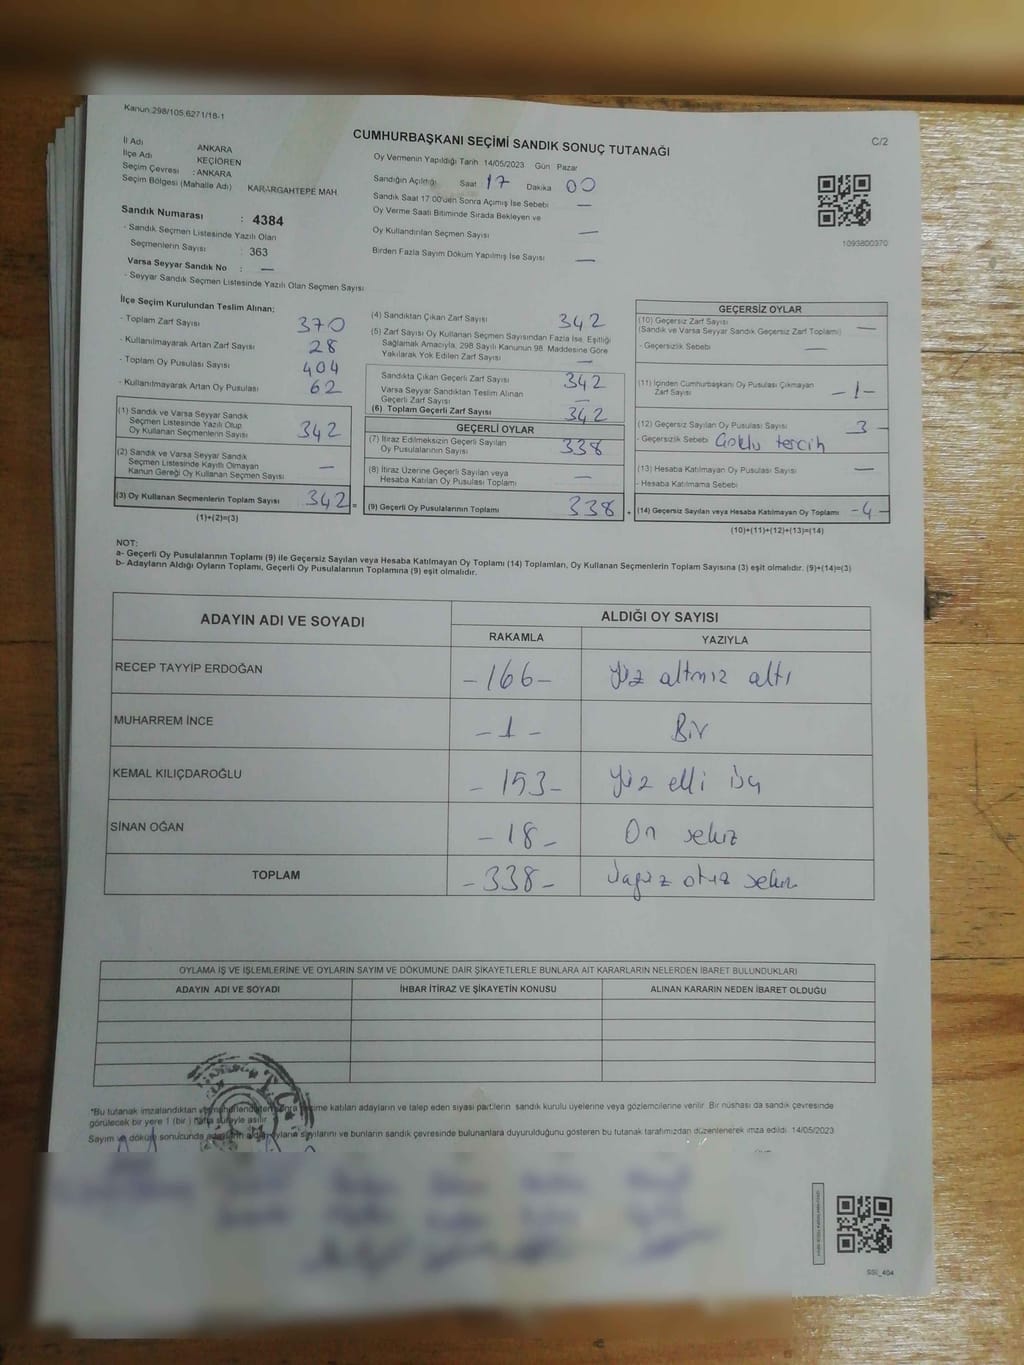 Kanun:298/105,6271/18-1
CUMHURBAŞKANI SEÇİMİ SANDIK SONUÇ TUTANAĞI
C/2
İl Adı ANKARA
İlçe Adı KEÇİÖREN
Seçim Çevresi : ANKARA
Seçim Bölgesi (Mahalle Adı) KARARGAHTEPE MAH.
Sandık Numarası : 4384
- Sandık Seçmen Listesinde Yazılı Olan
Seçmenlerin Sayısı : 363
Varsa Seyyar Sandık No : —
- Seyyar Sandık Seçmen Listesinde Yazılı Olan Seçmen Sayısı
Oy Vermenin Yapıldığı Tarih 14/05/2023 Gün Pazar
Sandığın Açıldığı Saat 17 Dakika 00
Sandık Saat 17:00'den Sonra Açılmış İse Sebebi —
Oy Verme Saati Bitiminde Sırada Bekleyen ve
Oy Kullandırılan Seçmen Sayısı —
Birden Fazla Sayım Döküm Yapılmış İse Sayısı —
1093800370
İlçe Seçim Kurulundan Teslim Alınan:
- Toplam Zarf Sayısı 370
- Kullanılmayarak Artan Zarf Sayısı 28
- Toplam Oy Pusulası Sayısı 404
- Kullanılmayarak Artan Oy Pusulası 62
(1) Sandık ve Varsa Seyyar Sandık
Seçmen Listesinde Yazılı Olup
Oy Kullanan Seçmenlerin Sayısı 342
(2) Sandık ve Varsa Seyyar Sandık
Seçmen Listesinde Kayıtlı Olmayan
Kanun Gereği Oy Kullanan Seçmen Sayısı —
(3) Oy Kullanan Seçmenlerin Toplam Sayısı 342 =
(1)+(2)=(3)
(4) Sandıktan Çıkan Zarf Sayısı 342
(5) Zarf Sayısı Oy Kullanan Seçmen Sayısından Fazla İse, Eşitliği
Sağlamak Amacıyla, 298 Sayılı Kanunun 98. Maddesine Göre
Yakılarak Yok Edilen Zarf Sayısı —
Sandıkta Çıkan Geçerli Zarf Sayısı 342
Varsa Seyyar Sandıktan Teslim Alınan
Geçerli Zarf Sayısı —
(6) Toplam Geçerli Zarf Sayısı 342
GEÇERLİ OYLAR
(7) İtiraz Edilmeksizin Geçerli Sayılan
Oy Pusulalarının Sayısı 338
(8) İtiraz Üzerine Geçerli Sayılan veya
Hesaba Katılan Oy Pusulası Toplamı —
(9) Geçerli Oy Pusulalarının Toplamı 338 +
GEÇERSİZ OYLAR
(10) Geçersiz Zarf Sayısı
(Sandık ve Varsa Seyyar Sandık Geçersiz Zarf Toplamı) —
- Geçersizlik Sebebi —
(11) İçinden Cumhurbaşkanı Oy Pusulası Çıkmayan
Zarf Sayısı -1-
(12) Geçersiz Sayılan Oy Pusulası Sayısı 3 -
- Geçersizlik Sebebi Çoklu tercih
(13) Hesaba Katılmayan Oy Pusulası Sayısı —
- Hesaba Katılmama Sebebi
(14) Geçersiz Sayılan veya Hesaba Katılmayan Oy Toplamı -4-
(10)+(11)+(12)+(13)=(14)
NOT:
a- Geçerli Oy Pusulalarının Toplamı (9) ile Geçersiz Sayılan veya Hesaba Katılmayan Oy Toplamı (14) Toplamları, Oy Kullanan Seçmenlerin Toplam Sayısına (3) eşit olmalıdır. (9)+(14)=(3)
b- Adayların Aldığı Oyların Toplamı, Geçerli Oy Pusulalarının Toplamına (9) eşit olmalıdır.
ADAYIN ADI VE SOYADI ALDIĞI OY SAYISI
RAKAMLA YAZIYLA
RECEP TAYYİP ERDOĞAN -166- yüz altmış altı
MUHARREM İNCE -1- Bir
KEMAL KILIÇDAROĞLU -153- yüz elli üç
SİNAN OĞAN -18- On sekiz
TOPLAM -338- üçyüz otuz sekiz
OYLAMA İŞ VE İŞLEMLERİNE VE OYLARIN SAYIM VE DÖKÜMÜNE DAİR ŞİKAYETLERLE BUNLARA AİT KARARLARIN NELERDEN İBARET BULUNDUKLARI
ADAYIN ADI VE SOYADI İHBAR İTİRAZ VE ŞİKAYETİN KONUSU ALINAN KARARIN NEDEN İBARET OLDUĞU
*Bu tutanak imzalandıktan ve seçime katılan adayların ve talep eden siyasi partilerin sandık kurulu üyelerine veya gözlemcilerine verilir. Bir nüshası da sandık çevresinde
görülecek bir yere 1 (bir) hafta süreyle asılır.
Sayım ve döküm sonucunda adayların aldığı oyların sayılarını ve bunların sandık çevresinde bulunanlara duyurulduğunu gösteren bu tutanak tarafımızdan düzenlenerek imza edildi. 14/05/2023
SSİ_404